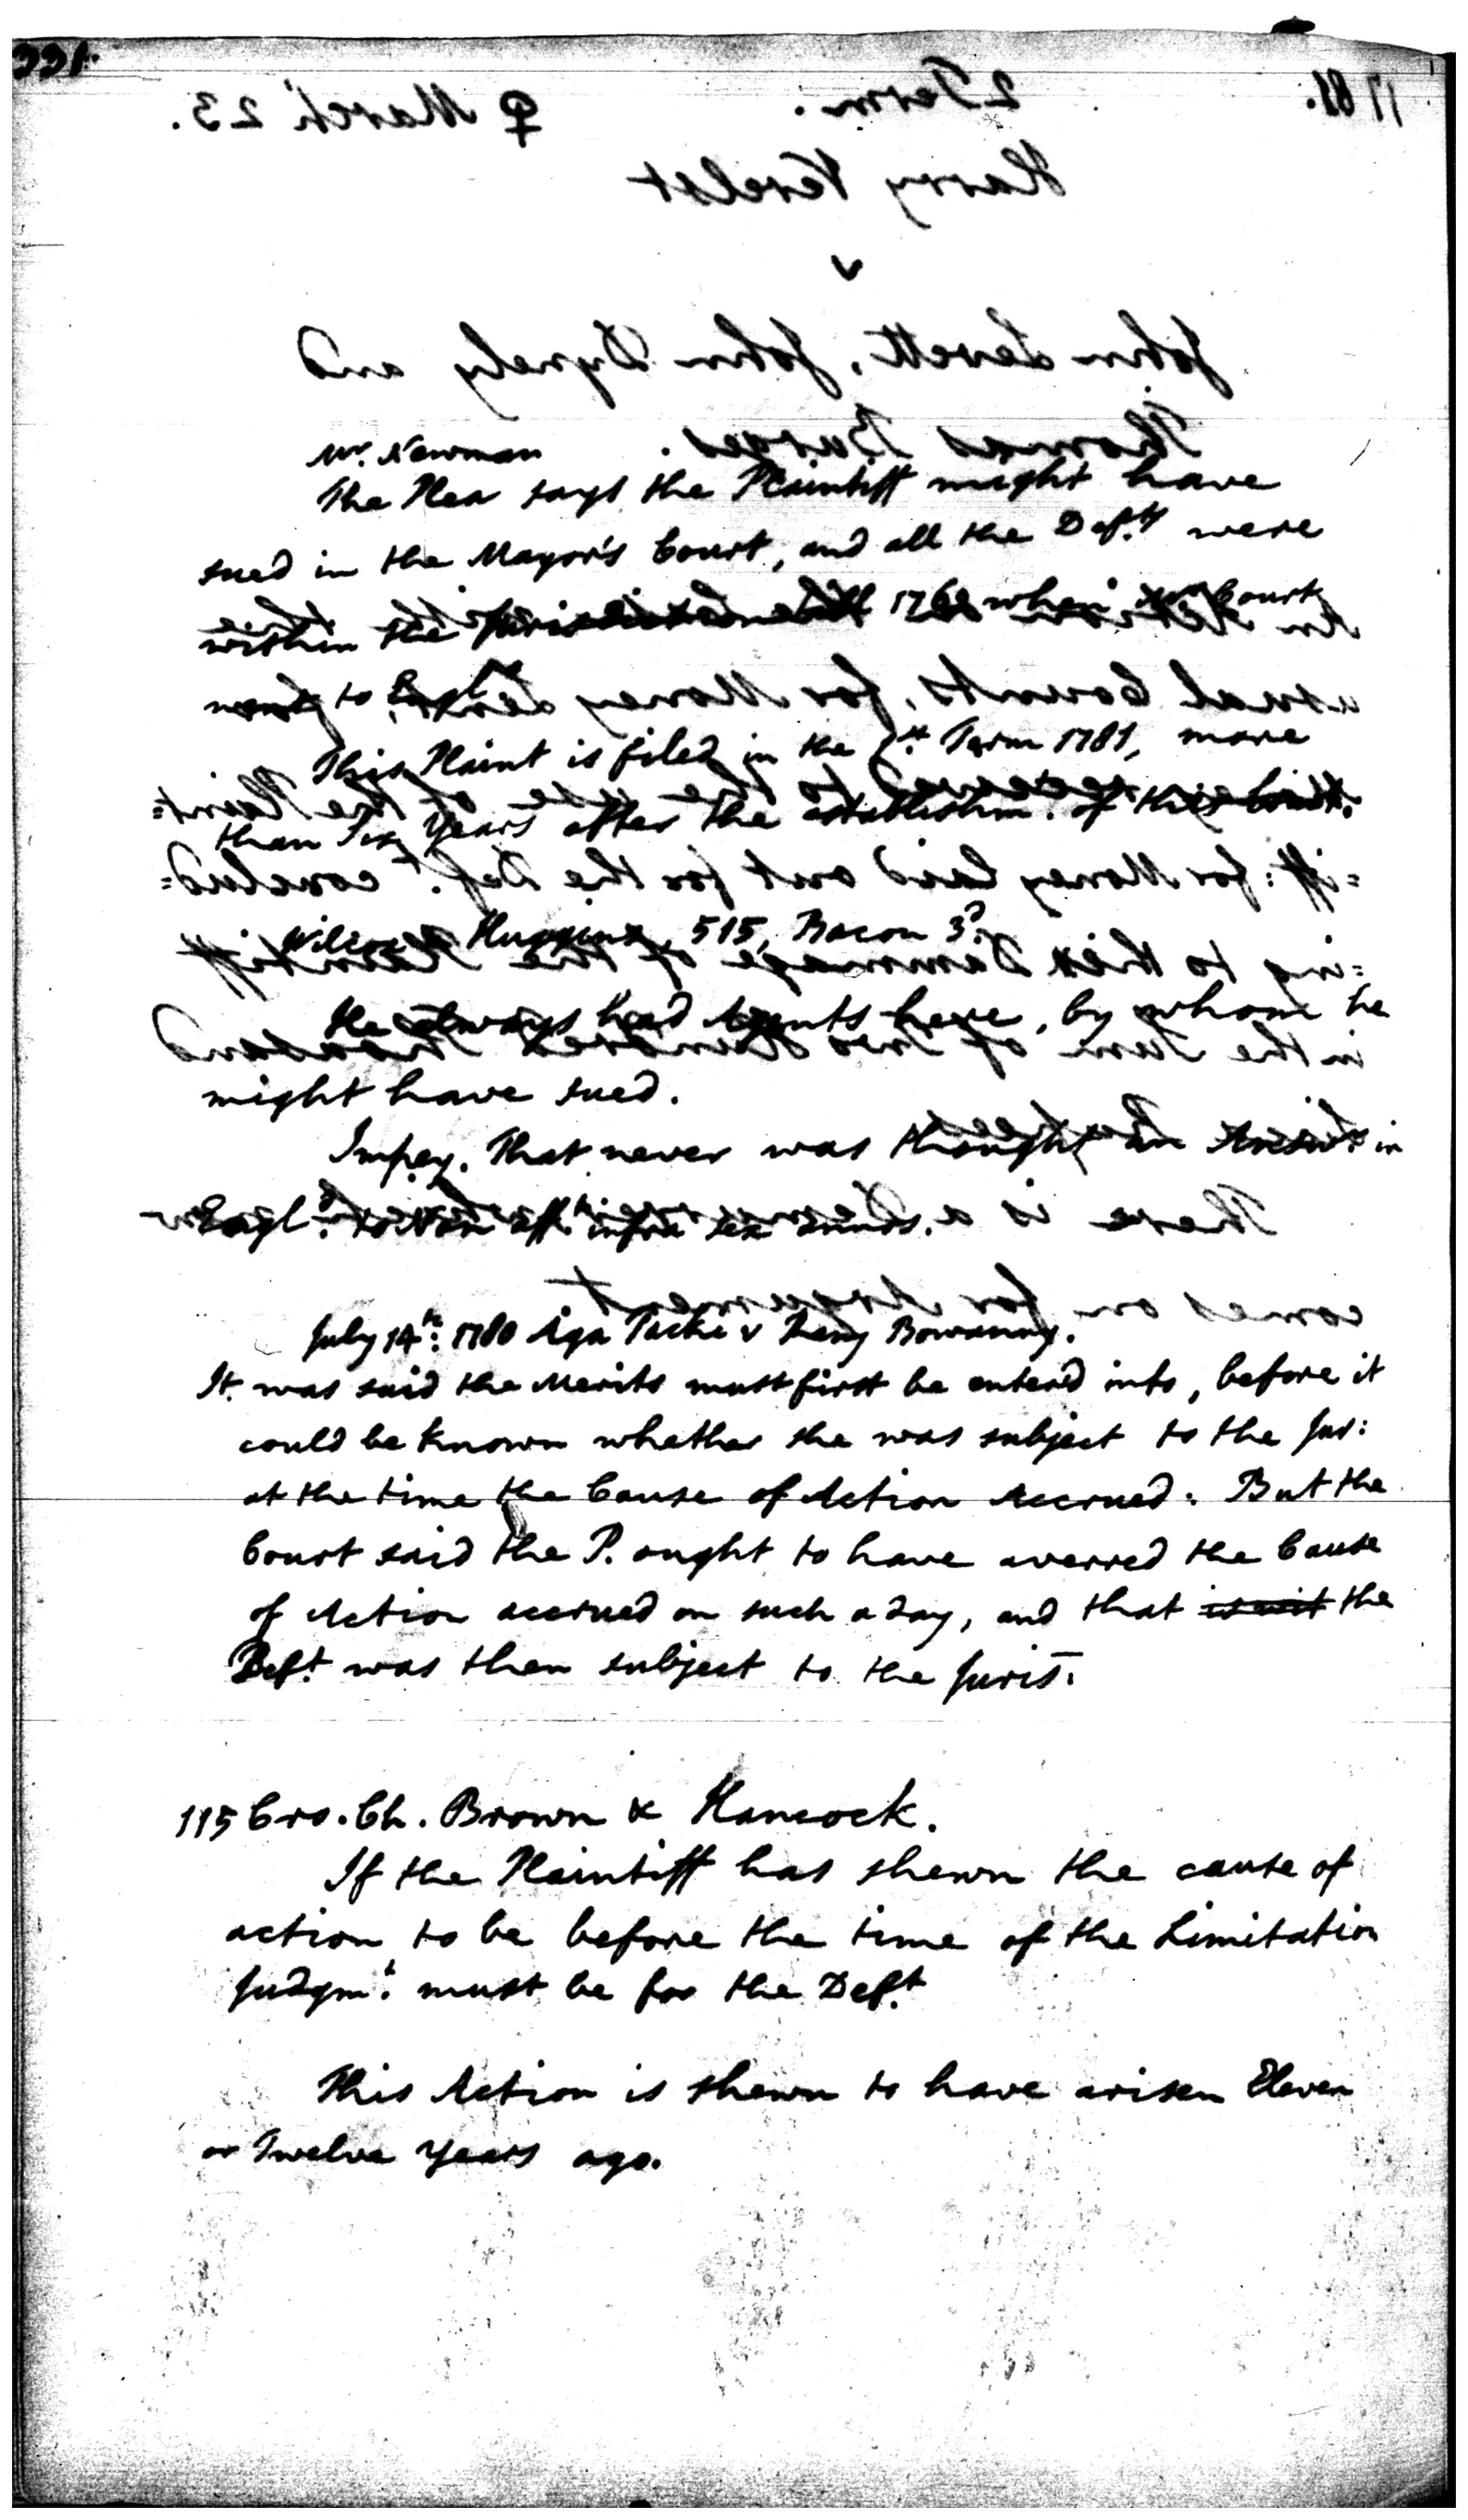 Mr. Newman
The Plea says the Plaintiff might have
sued in the Mayor's Court, and all the Def.ts were
within the Jurisdiction till 1769 when Court
went to Engl.d
This Plaint is filed in the 1st Term 1781, more
than Six Years after the establishm.t of this Court.
Wilcox v Huggins, 515, Bacon 3.d
He always had Agents here, by whom he
might have sued.
Impey. That never was thought an Answ.r in
Engl.d to Non ass.t infra sex annos.
July 14th: 1780 Aga Tacki v Rany Bowanny.
It was said the Merits must first be entered into, before it
could be known whether she was subject to the Jur:
at the time the Cause of Action accrued: But the
Court said the P. ought to have averred the Cause
of Action accrued on such a day, and that the
Def.t was then subject to the Juris:
115 Cro. Ch. Brown & Hancock.
If the Plaintiff has shewn the cause of
action to be before the time of the Limitation
Judgm.t must be for the Def.t
This Action is shewn to have arisen Eleven
or Twelve Years ago.